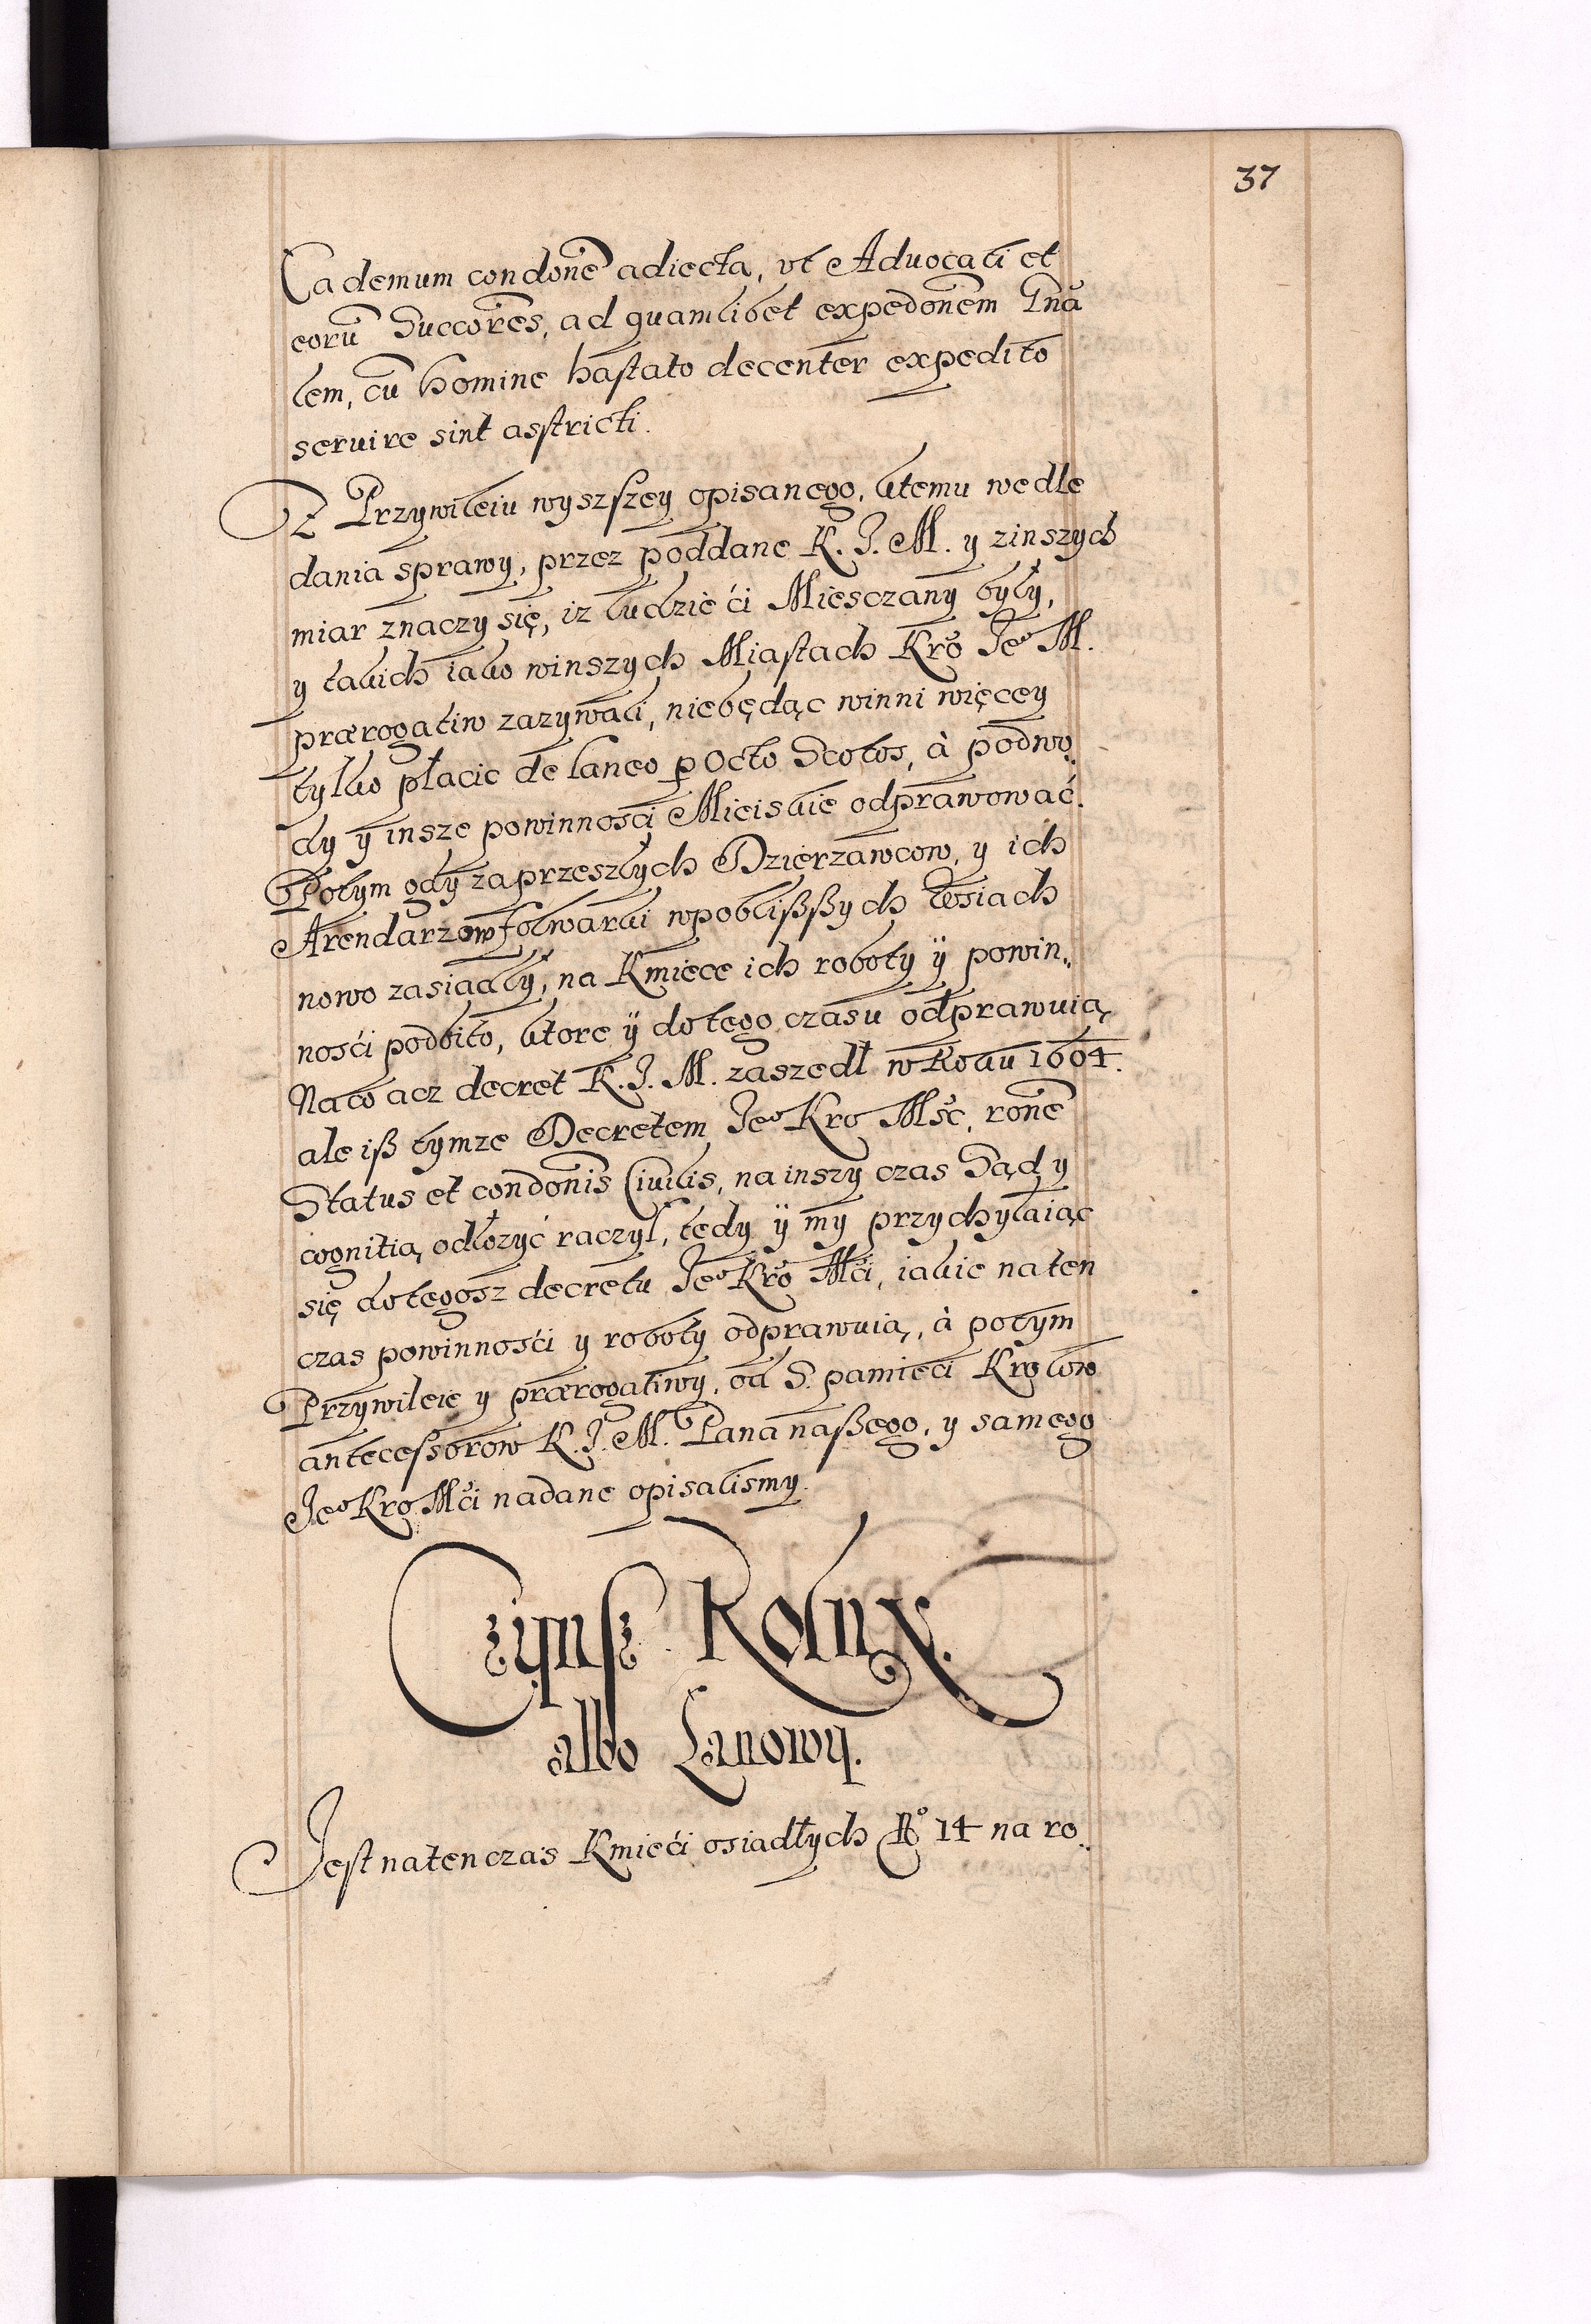 37
Ea demum condone͂ adiecta, vt Aduocati et
eoru͂ Succores, ad quamlibet expedonem Gna͂
lem, cu͂ homine hastato decenter expedito
seruire sint astricti.
Z Przywileiu wyszszey opisanego, ktemu wedle
dania sprawy, przez poddane K. J. M. y zinszych
miar znaczy się, iz ludzie ći Miesczany były,
y takich iako winszych Miastach Kro͂ Jeº M.
prærogatiw zazywali, niebędąc winni więcey
tylko płacic de laneo p octo Scotos, à podwo„
dy ÿ insze powinnosci Mieiskie odprawować.
Potym gdy zaprzeszłych Dzierzawcow, y ich
Arendarzow folwarki wpoblißßych Wsiach
nowo zasiadły, na Kmiece ich roboty ÿ powin„
nosći podbito, ktore ÿ do tego czasu odprawuią,
Na co acz decret K. J. M. zaszedł w Roku 1604.
ale iß tymze Decretem Jeº Kro Mśc, rone͂
Status et condonis Ciuilis, na inszy czas Sąd y
cognitią odłozyć raczył, tedy ÿ my przychylaiąc
się do tegosz decretu Jeº Kro͂ Mći, iakie na ten
czas powinnosći y roboty odprawuią, à potym
Przywileie y prærogatiwy, od S. pamieci Krolow
antecessorow K. J. M. Pana naßego, y samego
Jeº Kro Mśći nadane opisalismy.
Czynsz Rolny.
albo Łanowy.
Jest na ten czas Kmieći osiadłych Nº 14 na ro„